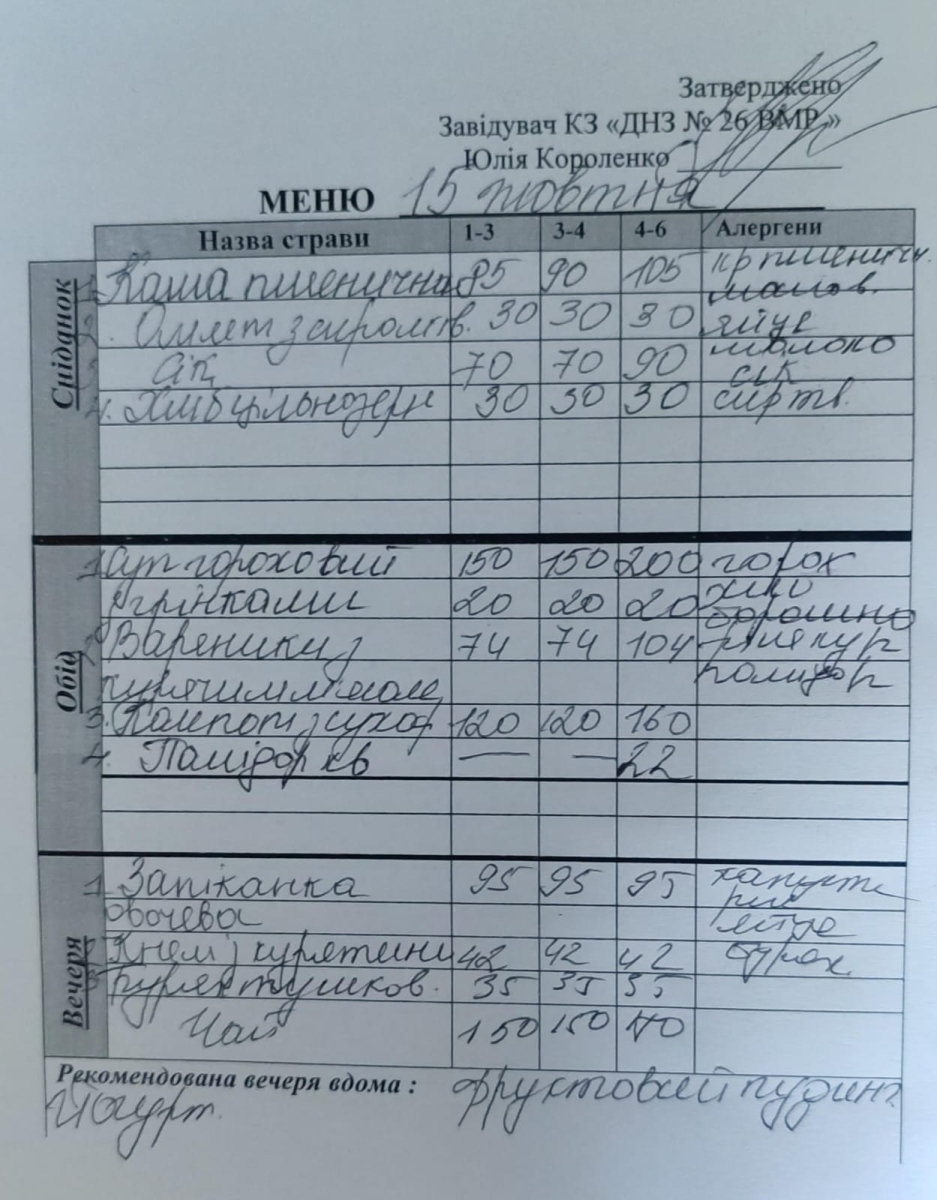 Затверджено
Завідувач КЗ «ДНЗ № 26 ВМР »
Юлія Короленко
МЕНЮ 15 жовтня
Назва страви 1-3 3-4 4-6 Алергени
Сніданок
1. Каша пшенична 85 90 105 кр пшеничн.
маслов.
2. Омлет з сиром тв. 30 30 30 яйце
молоко
3. Сік 70 70 90 сік
4. Хліб цільнозерн 30 30 30 сир тв.
Обід
1. Суп гороховий 150 150 200 горох
з грінками 20 20 20 хліб
борошно
2. Вареники з 74 74 104 філе кур
курячим м'ясом помідор
3. Компот з сухоф 120 120 160
4. Помідор св — — 22
Вечеря
1. Запіканка 95 95 95 капуста
риб
овочева яйце
2. Кнелі з курятини 42 42 42 буряк
3. Буряк тушков. 35 35 35
Чай 150 150 170
Рекомендована вечеря вдома : фруктовий пудинг
Йогурт.